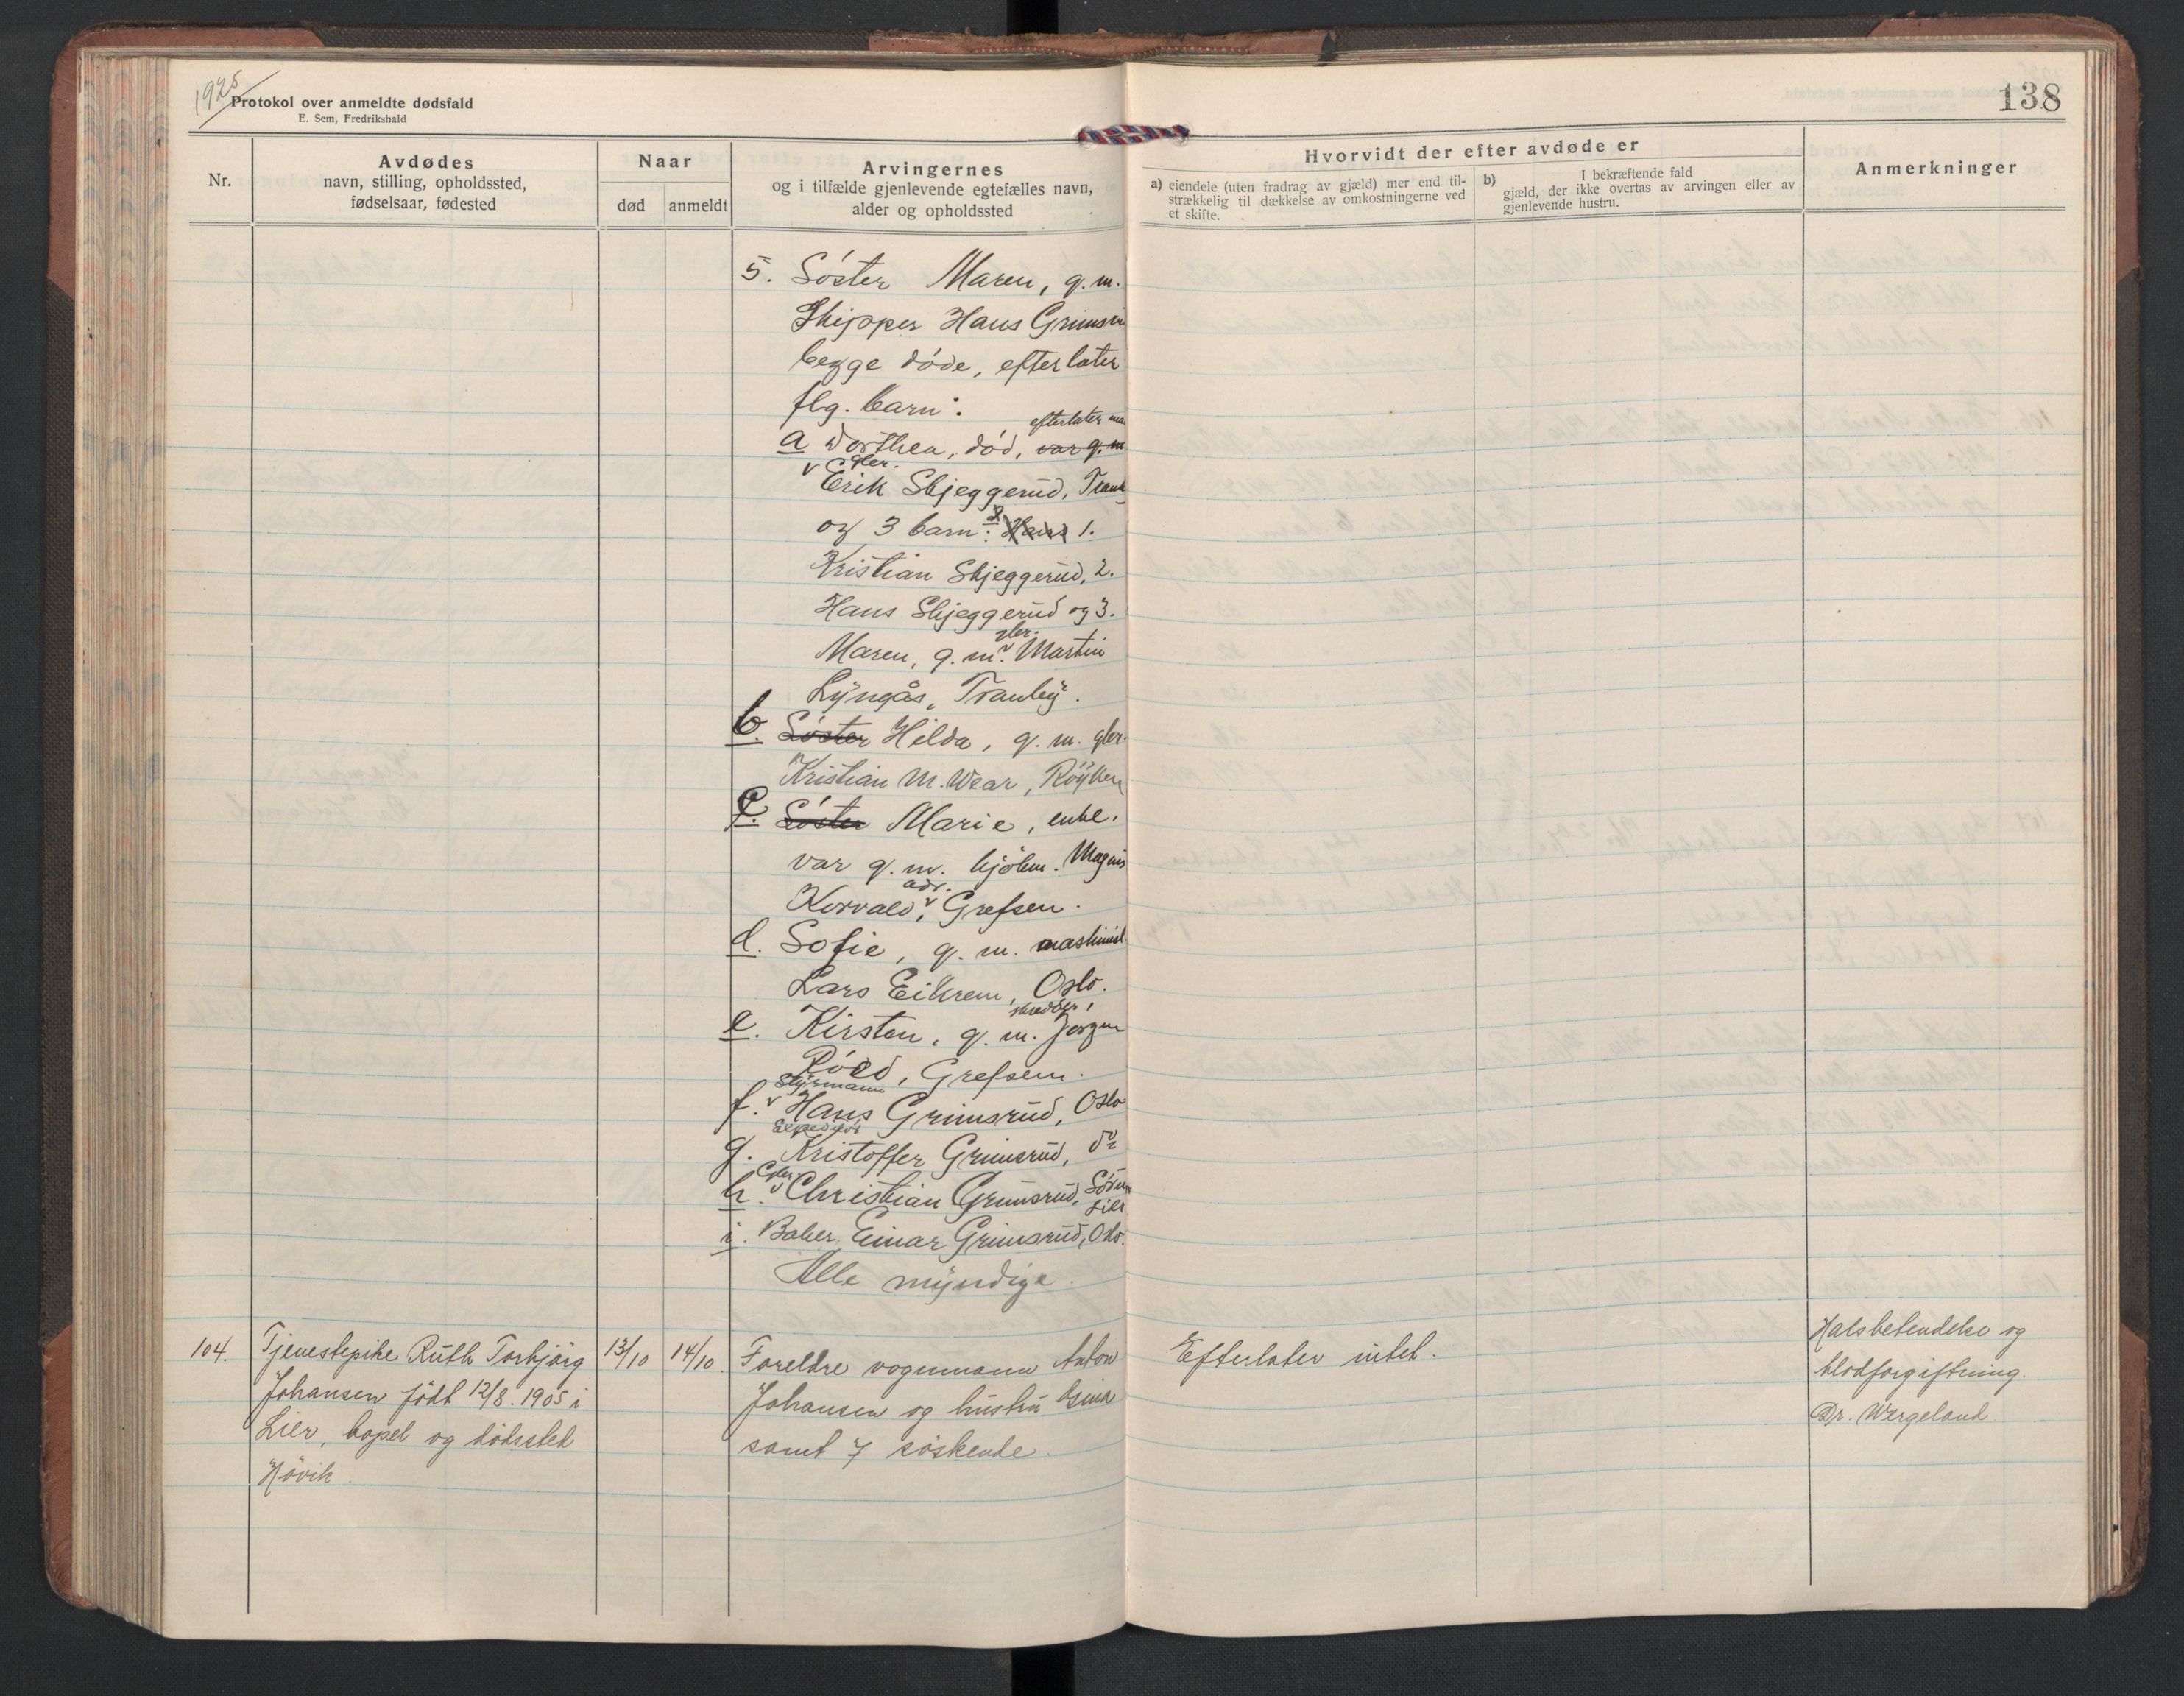 1925
Protokol over anmeldte dødsfald
E. Sem, Fredrikshald
138
Nr.
Avdødes
navn, stilling, opholdssted,
fødselsaar, fødested
Naar
død
anmeldt
Arvingernes
og i tilfælde gjenlevende egtefælles navn,
alder og opholdssted
Hvorvidt der efter avdøde er
a) eiendele (uten fradrag av gjæld) mer end til-
strækkelig til dækkelse av omkostningerne ved
et skifte.
b) I bekræftende fald
gjæld, der ikke overtas av arvingen eller av
gjenlevende hustru.
Anmerkninger
5. Søster Maren, g. m.
Skipper Hans
begge døde, efterlater
flg. barn:
efterlater
a Dorthea, død, var g. m
gbr.
Erik Skjeggerud,
og 3 barn: Hans 1.
Kristian Skjeggerud, 2.
Hans Skjeggerud og 3.
gbr.
Maren, g. m. Martin
Lyngås, Tranby.
b. Søster Hilda, g. m. gbr.
Kristian M. Wear, Røyken
c. Søster Marie, enke,
var g. m. kjøbm. Magnus
adr.
Korvald, Grefsen.
d. Sofie, g. m. maskinist
Lars Eikrem, Oslo.
e. Kirsten, g. m. Jørgen
Grefsen.
Styrmann
f. Hans Grimsrud, Oslo
Expeditør
g. Kristoffer Grimsrud, do
Gbr.
h. Christian Grimsrud,
Lier
i. Baker Einar Grimsrud, Oslo.
Alle myndige.
104.
Tjenestepike Ruth Torbjørg
Johansen født 12/8. 1905 i
Lier, bopel og dødssted
Høvik.
13/10
14/10.
Foreldre vognmann Anton
Johansen og hustru
samt 7 søskende.
Efterlater intet.
Halsbetendelse og
blodforgiftning.
Dr. Wergeland.